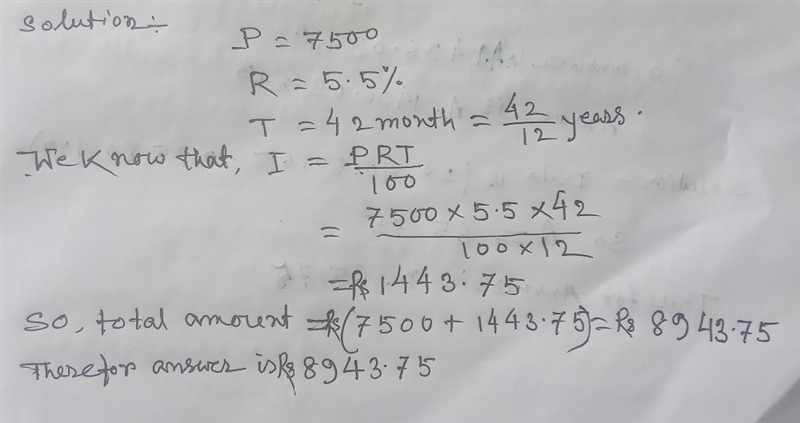 Solution:-
P = 7500
R = 5.5%
T = 42 month = 42/12 years.
We know that, I = PRT/100
= 7500 × 5.5 × 42/100 × 12
= Rs 1443.75
So, total amount = Rs (7500 + 1443.75) = Rs 8943.75
Therefor answer is Rs 8943.75